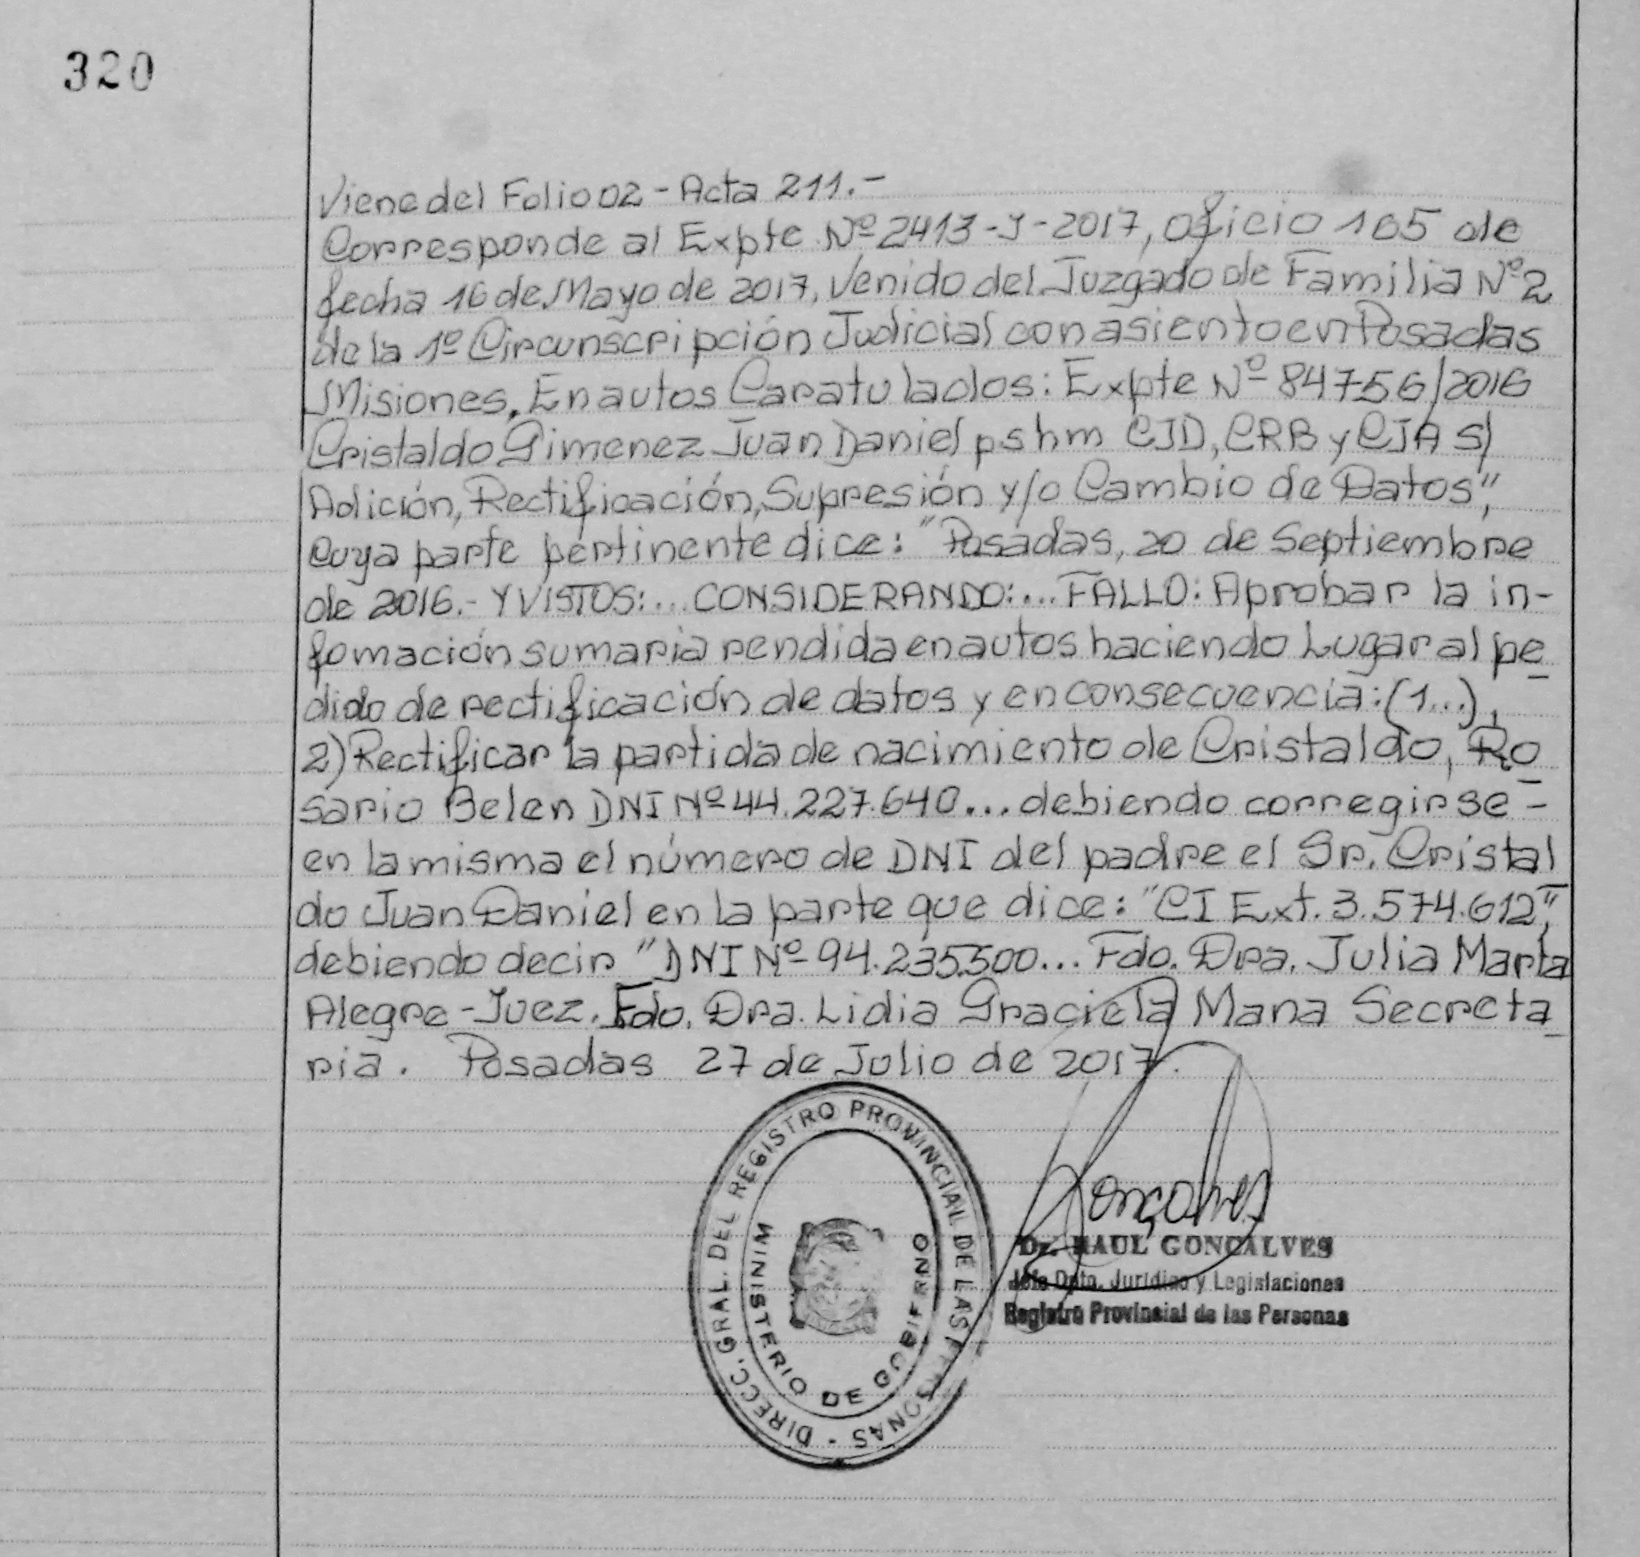 320
Viene del Folio 02 - Acta 211.-
Corresponde al Expte Nº 2413-J-2017, Oficio 165 de
fecha 16 de Mayo de 2017, Venido del Juzgado de Familia Nº 2
de la 1º Circunscripción Judicial con asiento en Posadas
Misiones. En autos Caratulados: Expte Nº 84756/2016
Cristaldo Gimenez Juan Daniel pshm CJD, CRB y CJA S/
Adición, Rectificación, Supresión y/o Cambio de Datos",
cuya parte pertinente dice: "Posadas, 20 de Septiembre
de 2016.- Y VISTOS:... CONSIDERANDO:... FALLO: Aprobar la in-
fomación sumaria rendida en autos haciendo Lugar al pe_
dido de rectificación de datos y en consecuencia: (1...),
2) Rectificar la partida de nacimiento de Cristaldo, Ro_
sario Belen DNI Nº 44.227.640... debiendo corregirse -
en la misma el número de DNI del padre el Sr. Cristal
do Juan Daniel en la parte que dice: "CI Ext. 3.574.612",
debiendo decir "DNI Nº 94.235.500... Fdo. Dra. Julia Marta
Alegre - Juez. Fdo. Dra. Lidia Graciela Mana Secreta_
ria. Posadas 27 de Julio de 2017.
DIRECC. GRAL. DEL REGISTRO PROVINCIAL DE LAS PERSONAS -
MINISTERIO DE GOBIERNO
Gonçalves
Dr. RAUL GONCALVES
Jefe Dpto. Jurídico y Legislaciones
Registro Provincial de las Personas